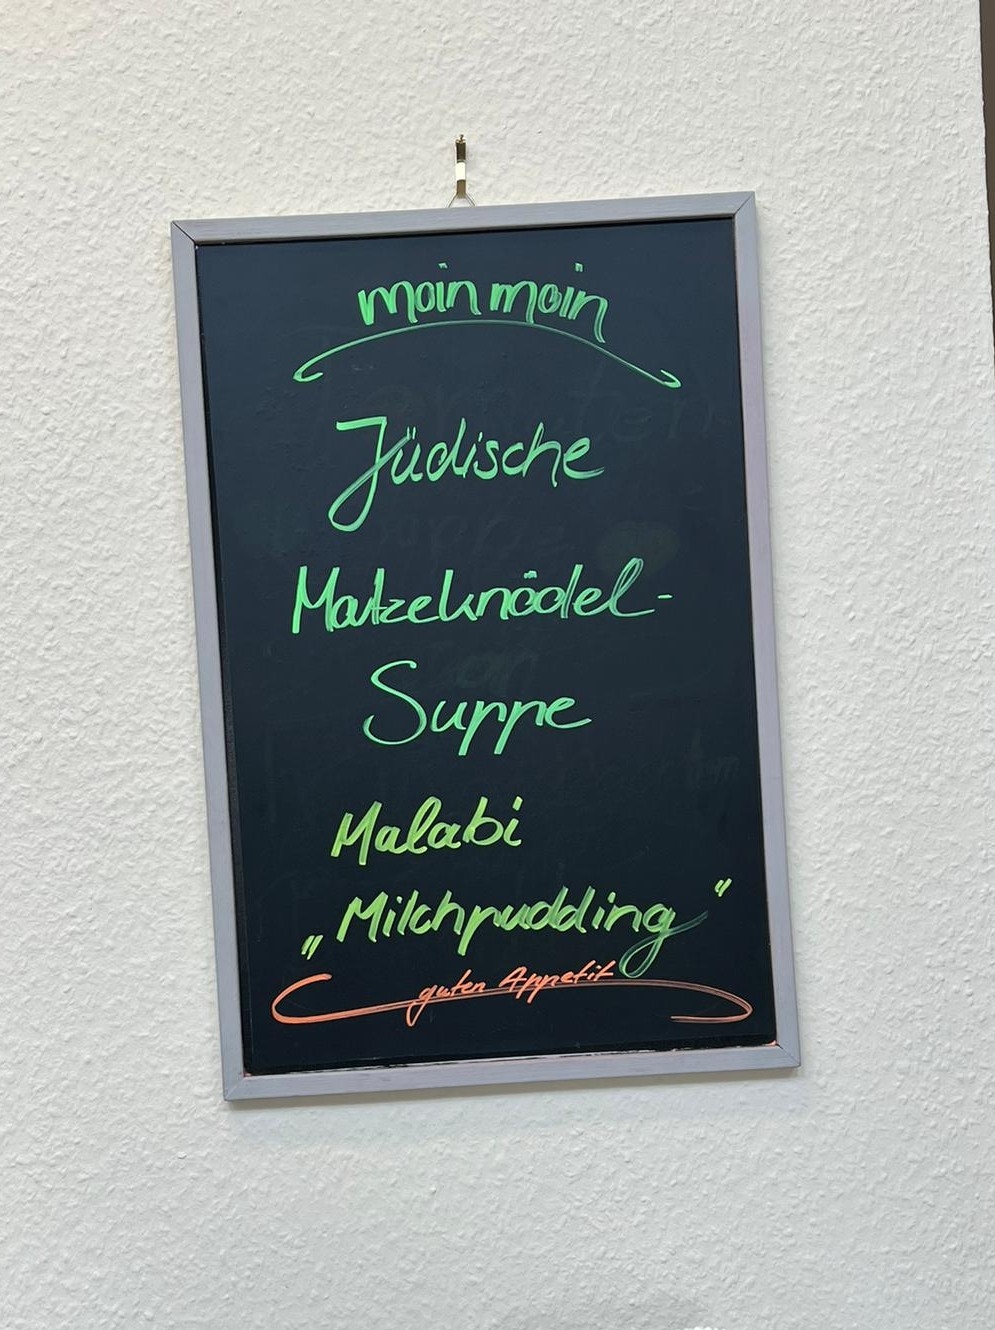 moin moin
Jüdische
Matzeknödel-
Suppe
Malabi
„Milchpudding"
guten Appetit